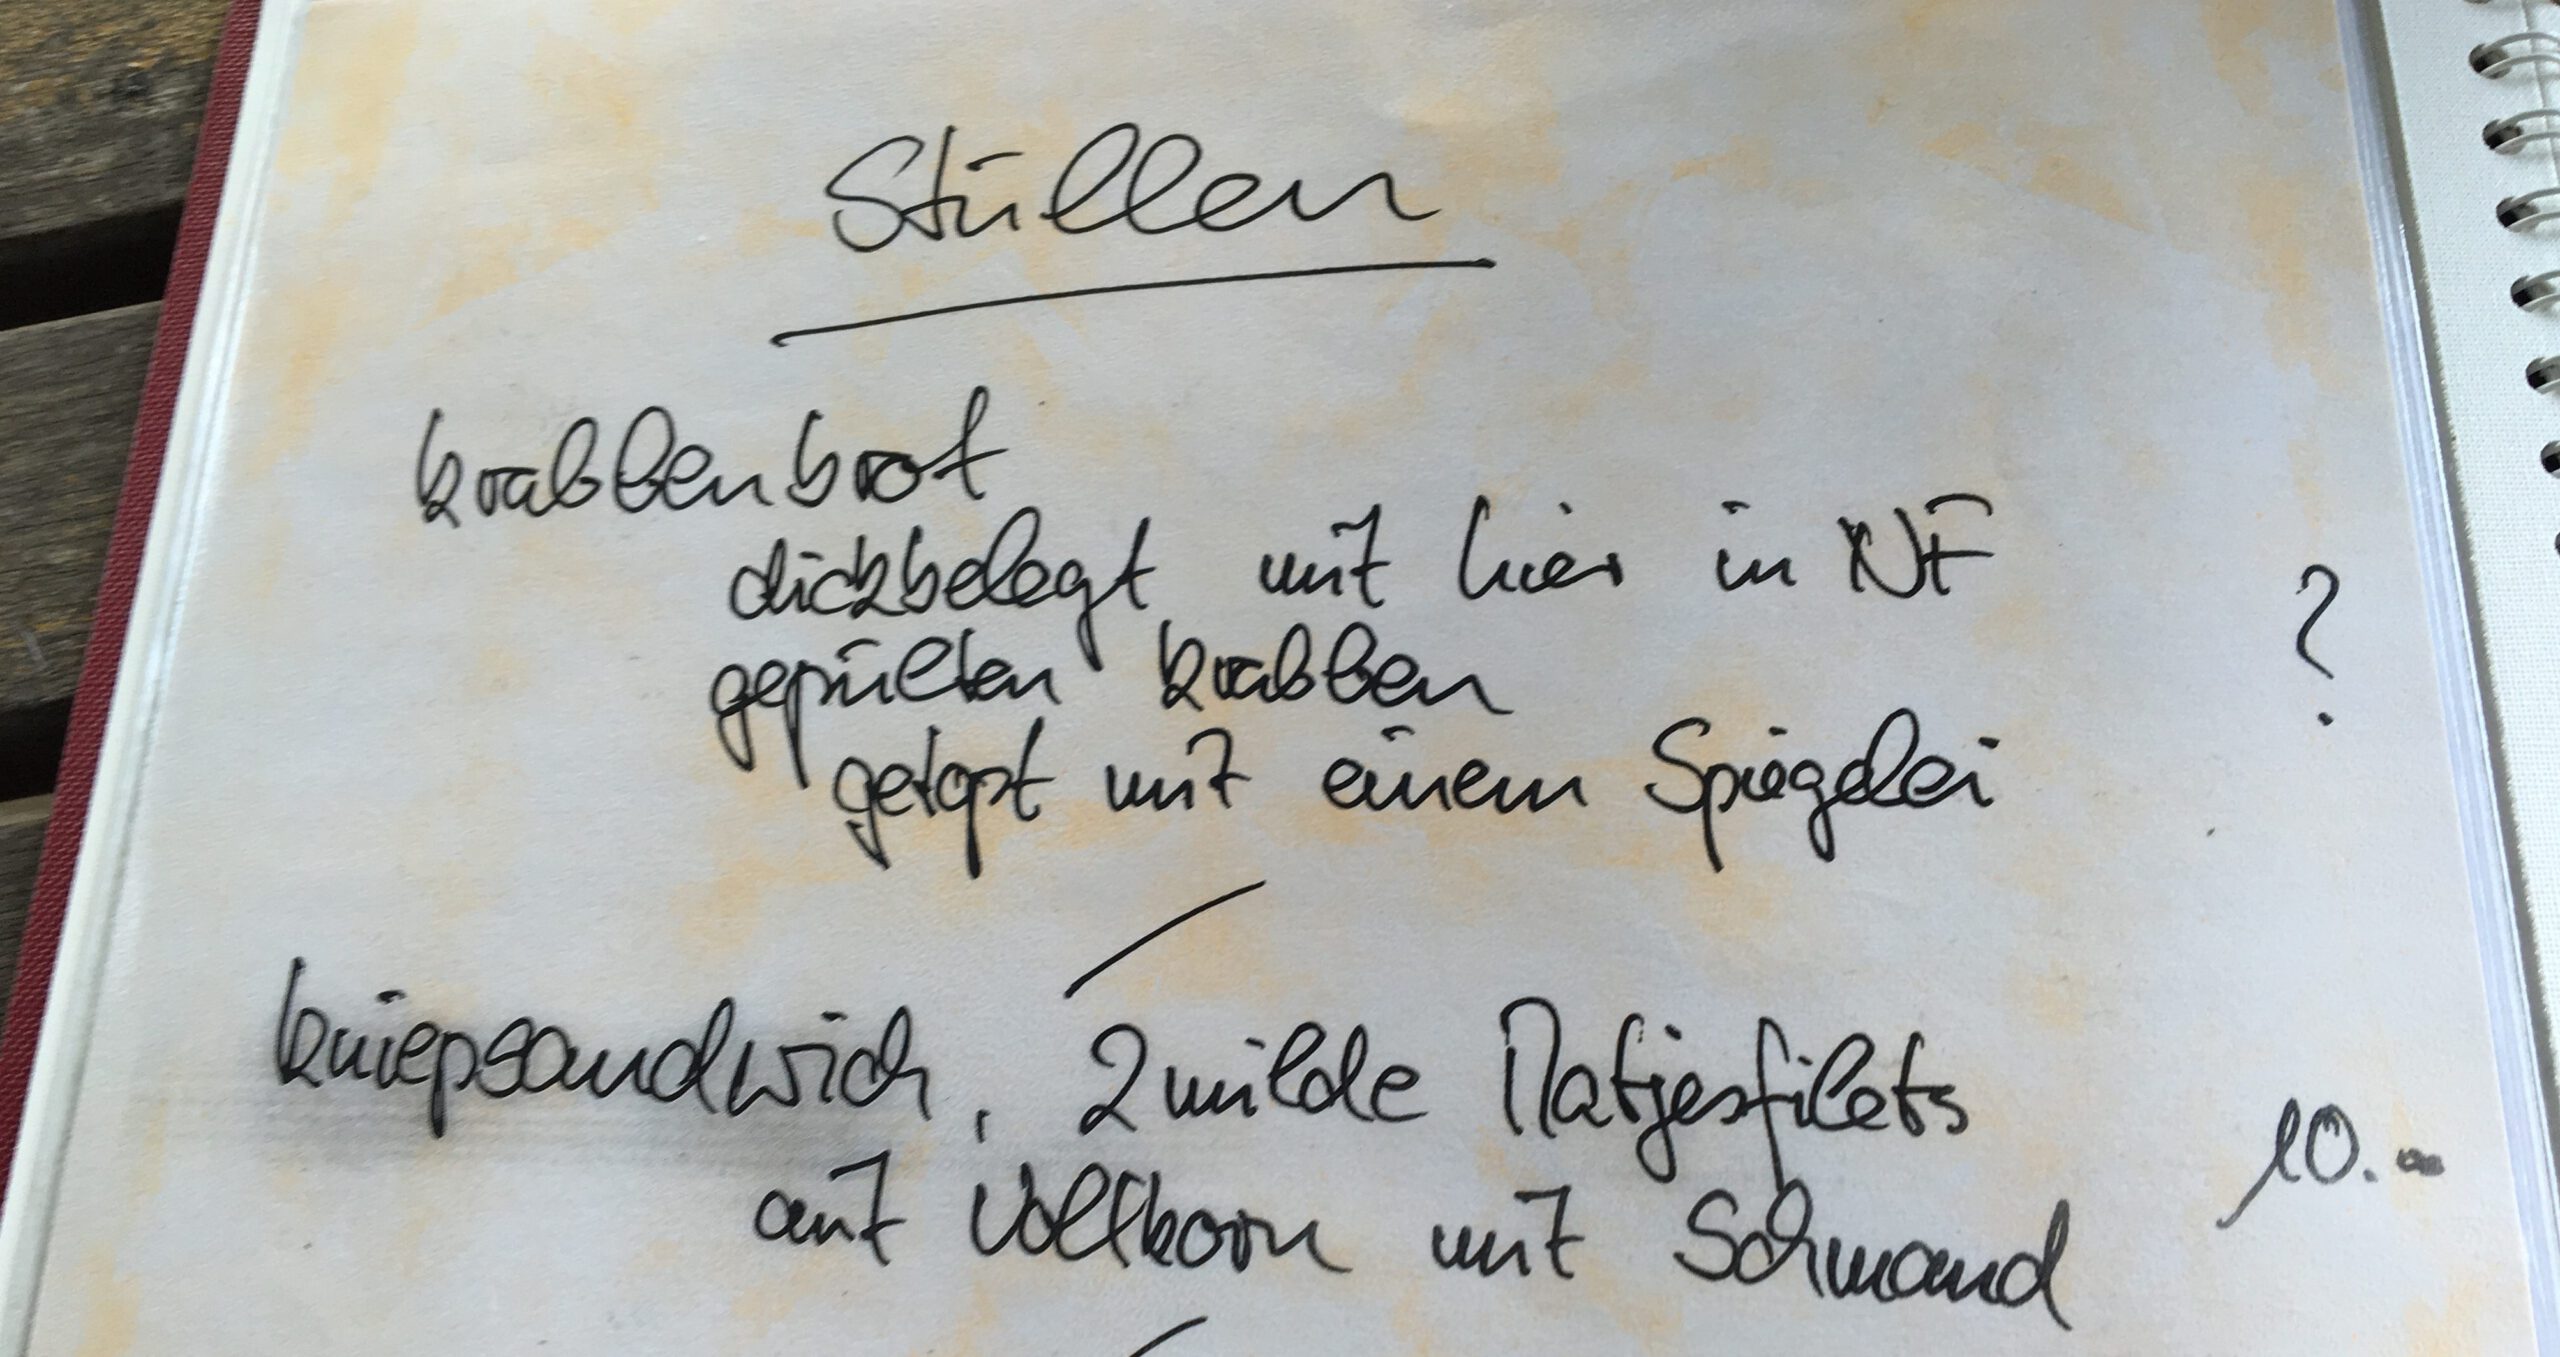 Stüllen
krabbenbrot
dickbelegt mit hier in NF
gepülten krabben
?
getopt mit einem Spiegelei
kniepsandwich, 2 milde Matjesfilets
10.-
auf Vollkorn mit Schmand